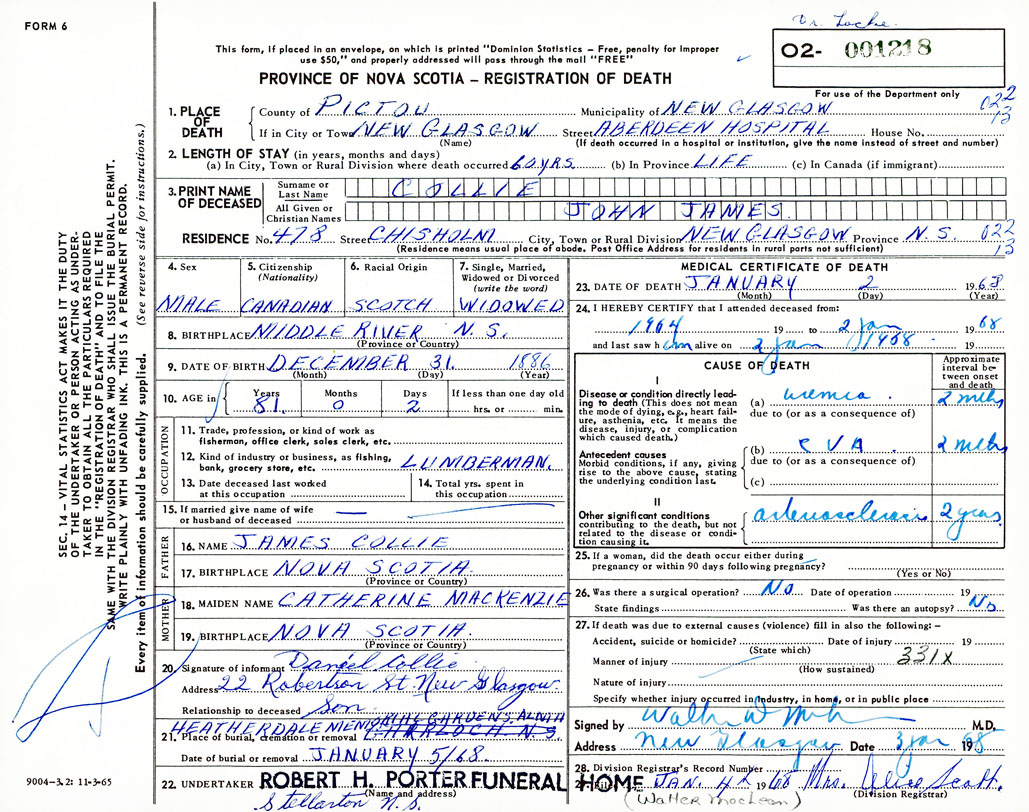 FORM 6
Dr. Locke.
This form, if placed in an envelope, on which is printed "Dominion Statistics – Free, penalty for improper
use $50," and properly addressed will pass through the mail "FREE"
PROVINCE OF NOVA SCOTIA – REGISTRATION OF DEATH
02- 001218
For use of the Department only
022
13
1. PLACE OF DEATH { County of PICTOU Municipality of NEW GLASGOW
If in City or Town NEW GLASGOW Street ABERDEEN HOSPITAL House No.
(Name) (If death occurred in a hospital or institution, give the name instead of street and number)
2. LENGTH OF STAY (in years, months and days)
(a) In City, Town or Rural Division where death occurred 60 YRS. (b) In Province LIFE (c) In Canada (if immigrant)
3. PRINT NAME OF DECEASED { Surname or Last Name COLLIE
All Given or Christian Names JOHN JAMES
RESIDENCE No. 478 Street CHISHOLM City, Town or Rural Division NEW GLASGOW Province N.S. 022
13
(Residence means usual place of abode. Post Office Address for residents in rural parts not sufficient)
4. Sex MALE
5. Citizenship (Nationality) CANADIAN
6. Racial Origin SCOTCH
7. Single, Married, Widowed or Divorced (write the word) WIDOWED
8. BIRTHPLACE MIDDLE RIVER N.S.
(Province or Country)
9. DATE OF BIRTH DECEMBER 31. 1886
(Month) (Day) (Year)
10. AGE in { Years 81. Months 0 Days 2 If less than one day old hrs. or min.
OCCUPATION
11. Trade, profession, or kind of work as
fisherman, office clerk, sales clerk, etc.
12. Kind of industry or business, as fishing,
bank, grocery store, etc. LUMBERMAN.
13. Date deceased last worked
at this occupation
14. Total yrs. spent in
this occupation
15. If married give name of wife
or husband of deceased —
FATHER
16. NAME JAMES COLLIE
17. BIRTHPLACE NOVA SCOTIA
(Province or Country)
MOTHER
18. MAIDEN NAME CATHERINE MACKENZIE
19. BIRTHPLACE NOVA SCOTIA.
(Province or Country)
20. Signature of informant Daniel Collie
Address 22 Robertson St New Glasgow.
Relationship to deceased Son.
HEATHERDALE MEMORIAL GARDENS, ALMA
21. Place of burial, cremation or removal
Date of burial or removal JANUARY 5/68
22. UNDERTAKER ROBERT H. PORTER FUNERAL HOME
(Name and address)
Stellarton N.S.
MEDICAL CERTIFICATE OF DEATH
23. DATE OF DEATH JANUARY 2 1968
(Month) (Day) (Year)
24. I HEREBY CERTIFY that I attended deceased from:
1964 19 to 2 Jan 1968
and last saw him alive on 2 Jan 1968
CAUSE OF DEATH
Approximate interval between onset and death
I
Disease or condition directly leading to death (This does not mean the mode of dying, e.g., heart failure, asthenia, etc. It means the disease, injury, or complication which caused death.)
(a) uremia. 2 mths
due to (or as a consequence of)
Antecedent causes
Morbid conditions, if any, giving rise to the above cause, stating the underlying condition last.
(b) CVA 2 mths
due to (or as a consequence of)
(c)
II
Other significant conditions
contributing to the death, but not related to the disease or condition causing it.
arteriosclerosis 2 years
25. If a woman, did the death occur either during
pregnancy or within 90 days following pregnancy?
(Yes or No)
26. Was there a surgical operation? No Date of operation 19
State findings Was there an autopsy? No
27. If death was due to external causes (violence) fill in also the following:–
Accident, suicide or homicide? Date of injury 19
(State which)
Manner of injury 331X
(How sustained)
Nature of injury
Specify whether injury occurred in industry, in home, or in public place
Signed by M.D.
Address New Glasgow Date 3 Jan 1968
28. Division Registrar's Record Number
JAN. 4 1968 Mrs. Scott.
(Division Registrar)
(Walter MacLean)
SEC. 14 – VITAL STATISTICS ACT MAKES IT THE DUTY
OF THE UNDERTAKER OR PERSON ACTING AS UNDER-
TAKER TO OBTAIN ALL THE PARTICULARS REQUIRED
IN THE "REGISTRATION OF DEATH" AND TO FILE IT
SAME WITH THE DIVISION REGISTRAR WHO SHALL ISSUE THE BURIAL PERMIT.
WRITE PLAINLY WITH UNFADING INK. THIS IS A PERMANENT RECORD.
Every item of information should be carefully supplied. (See reverse side for instructions.)
9004–3.2: 11-3-65